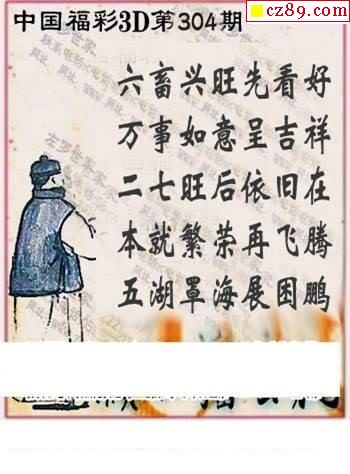 cz89.com
中国福彩3D第304期
六畜兴旺先看好
万事如意呈吉祥
二七旺后依旧在
本就繁荣再飞腾
五湖罩海展困鹏